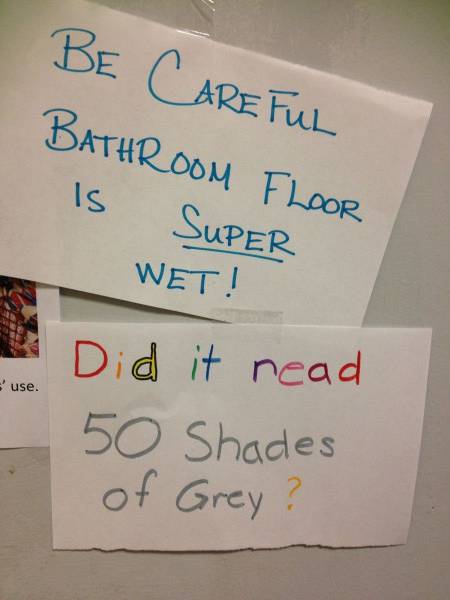 BE CAREFUL
BATHROOM FLOOR
IS SUPER
WET!
' use.
Did it read
50 Shades
of Grey?